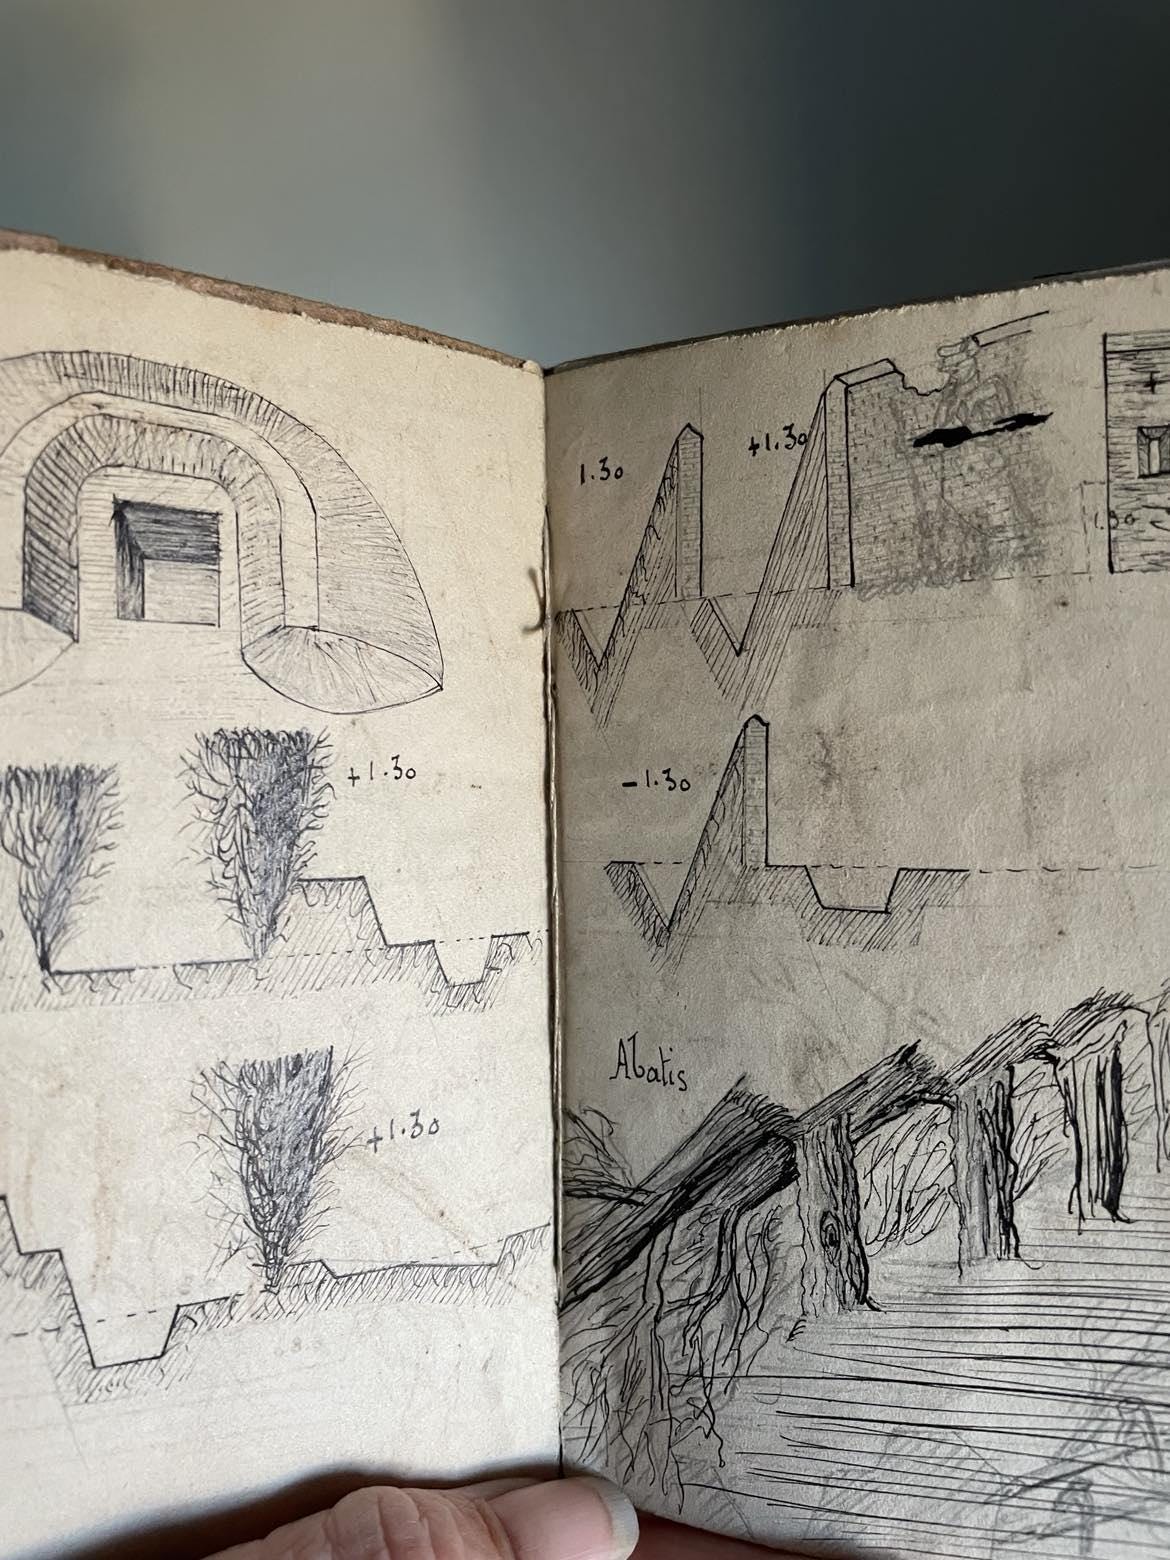 +1.30
+1.30
1.30
+1.30
1.30
-1.30
Abatis